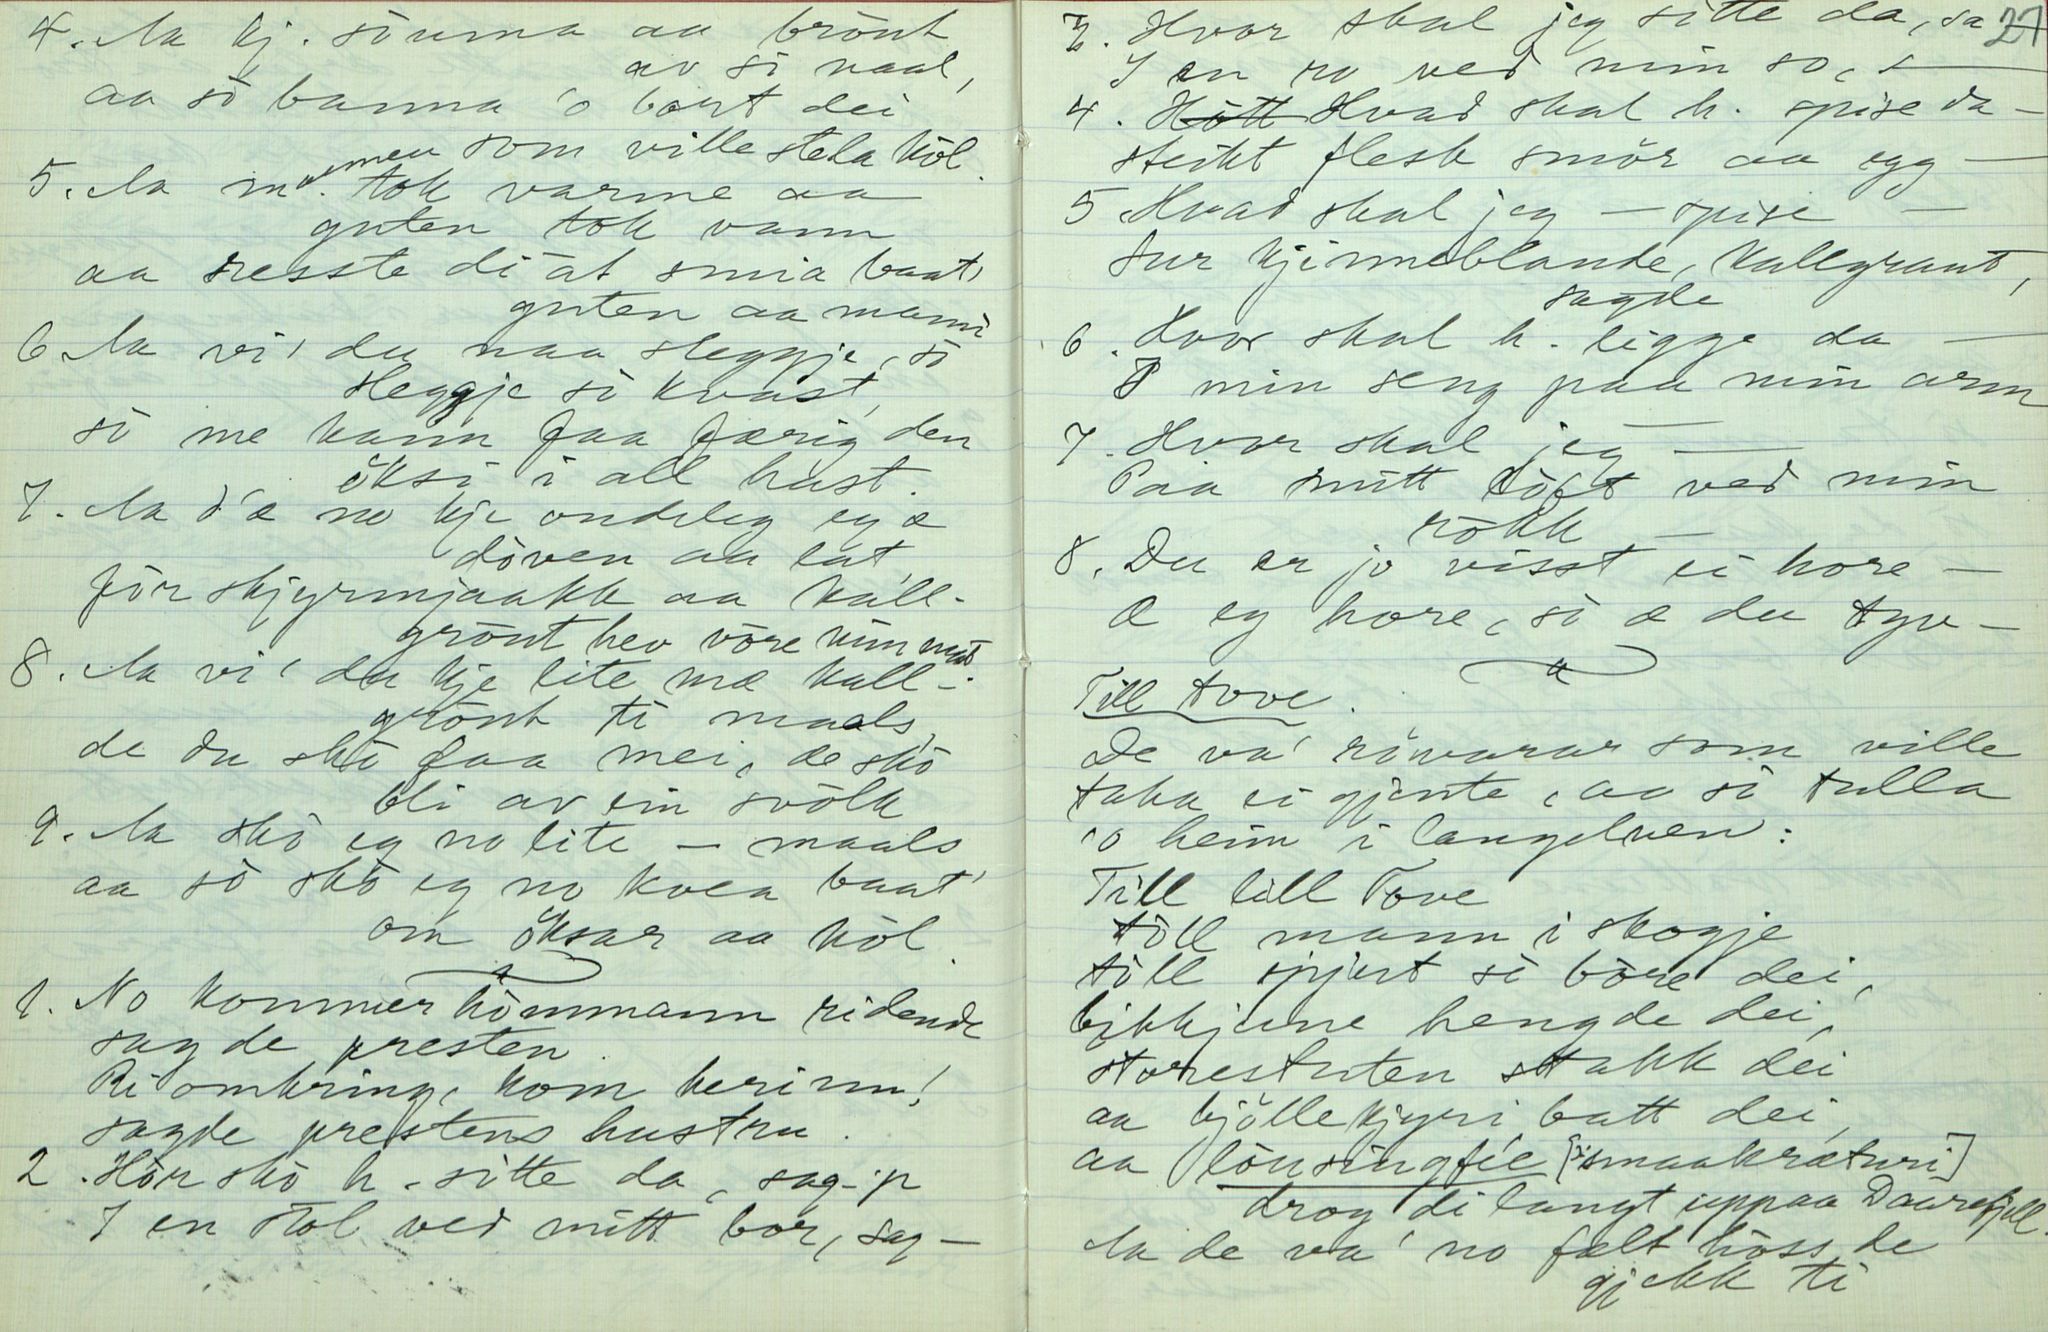 4. Aa kj. sòuma aa brònt
av si naal,
aa sò banna 'o bort dei
som ville stela kòl.
5. Aa mannen tok varme aa
guten tok vann
aa resste di at smia baat'
guten aa mann'
6 Aa vi' du naa sleggje, sò
sleggje sò kvast,
sò me kann faa færig den
öksi i all hast.
7. Aa d'æ no kje ondeleg eg æ
dòven aa lat,
för skjyrmjaakk aa kall-
grònt hev vòre min mat.
8. Aa vi' du kje lite mæ kall-
grònt ti maals,
de du skò faa mei, de skò
bli av ein svòlk
9. Aa skò eg no lite — maals
aa sò skò eg no kvea baat'
om öksar aa kòl.
1. No kommer hòmmann ridende
sagde presten.
Ri omkring, kom herinn!
sagde prestens hustru.
2. Hòr skò h. sitte da, sag-p
I en stol ved mitt bor, sag—
27
3. Hvor skal jeg sitte da, sa
I en ro ved min so, s—
4. Hòtt Hvad skal h. spise da —
steikt flesk smör aa egg —
5 Hvad skal jeg — spise —
sur kjinneblande, kallgraut,
sagde
6. Hvor skal h. ligge da —
I min seng paa min arm
7. Hvor skal jeg —
Paa mitt lòft ved min
rokk —
8. Du er jo visst ei hore —
Æ eg hore, sò æ du tyv —
Till tove.
De va' ròvarar som ville
taka ei gjente, aa sò tulla
'o heim i langelven:
Till lill Tove
tòll mann i skogje
tòll spjut sò bòre dei,
bikkjune hengde dei,
storestuten stakk dei
aa bjöllekjyri batt dei,
aa lòusingfe'e [: smaakræturi]
drog di langt uppaa Daarefjell.
Aa de va' no fælt hòss de
gjekk ti